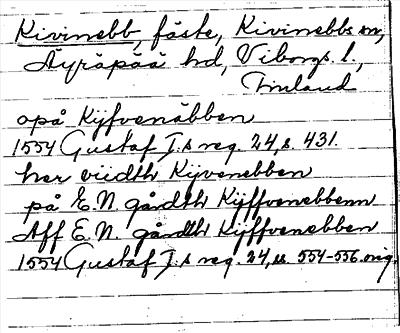 Kivinebb, fäste, Kivinebbs sn,
Äyräpää hd, Viborgs l.,
Finland
opå Kÿfvenäbben
1554 Gustaf I:s reg. 24, s. 431.
her viidth Kÿvenebben
på E.N. gårdth Kÿffvenebbenn
Aff E.N. gårdth Kÿffvenebben
1554 Gustaf I:s reg. 24, ss. 554-556. orig.